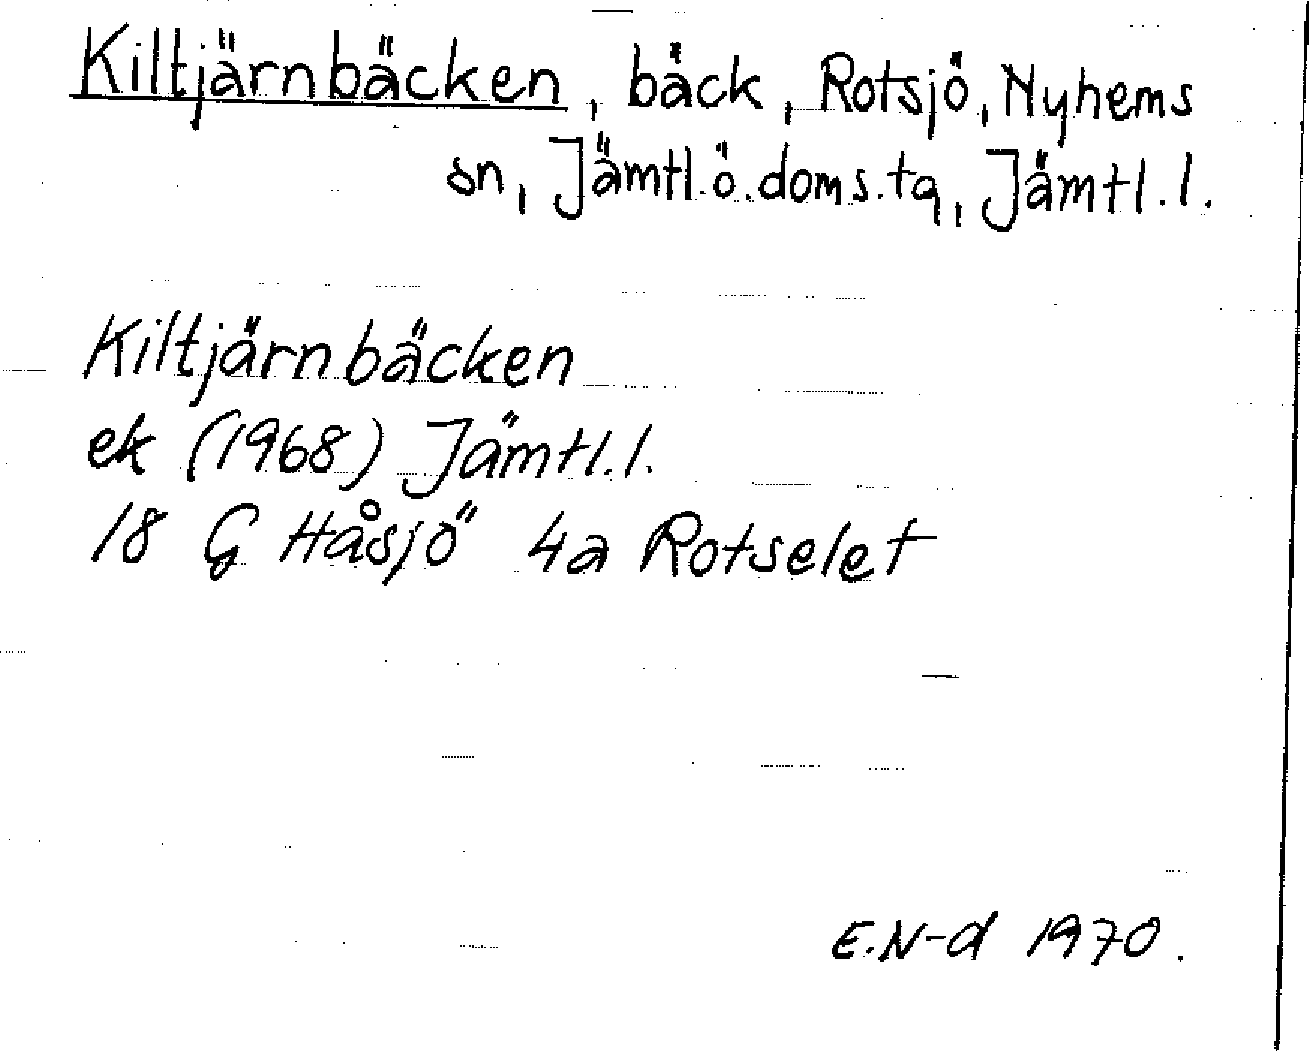 Kiltjärnbäcken, bäck, Rotsjö, Nyhems
sn, Jämtl.ö.doms.tg, Jämtl.l.
Kiltjärnbäcken
ek (1968) Jämtl.l.
18 G Håsjö 4a Rotselet
E.N-d 1970.